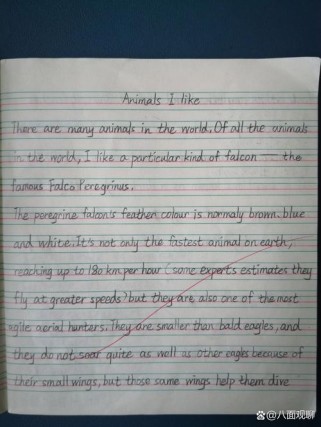 Animals I like
There are many animals in the world. Of all the animals
in the world, I like a particular kind of falcon — the
famous Falco Peregrinus.
The peregrine falcon's feather colour is normaly brown. blue
and white. It's not only the fastest animal on earth,
reaching up to 180 km per hour (some experts estimates they
fly at greater speeds) but they are also one of the most
agile aerial hunters. They are smaller than bald eagles, and
they do not soar quite as well as other eagles because of
their small wings, but those same wings help them dive
@八面观聊